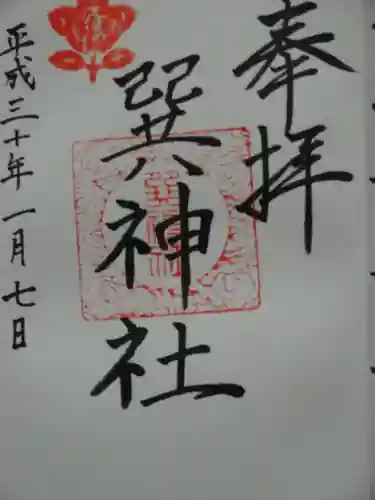 奉拝
巽神社
平成三十年一月七日